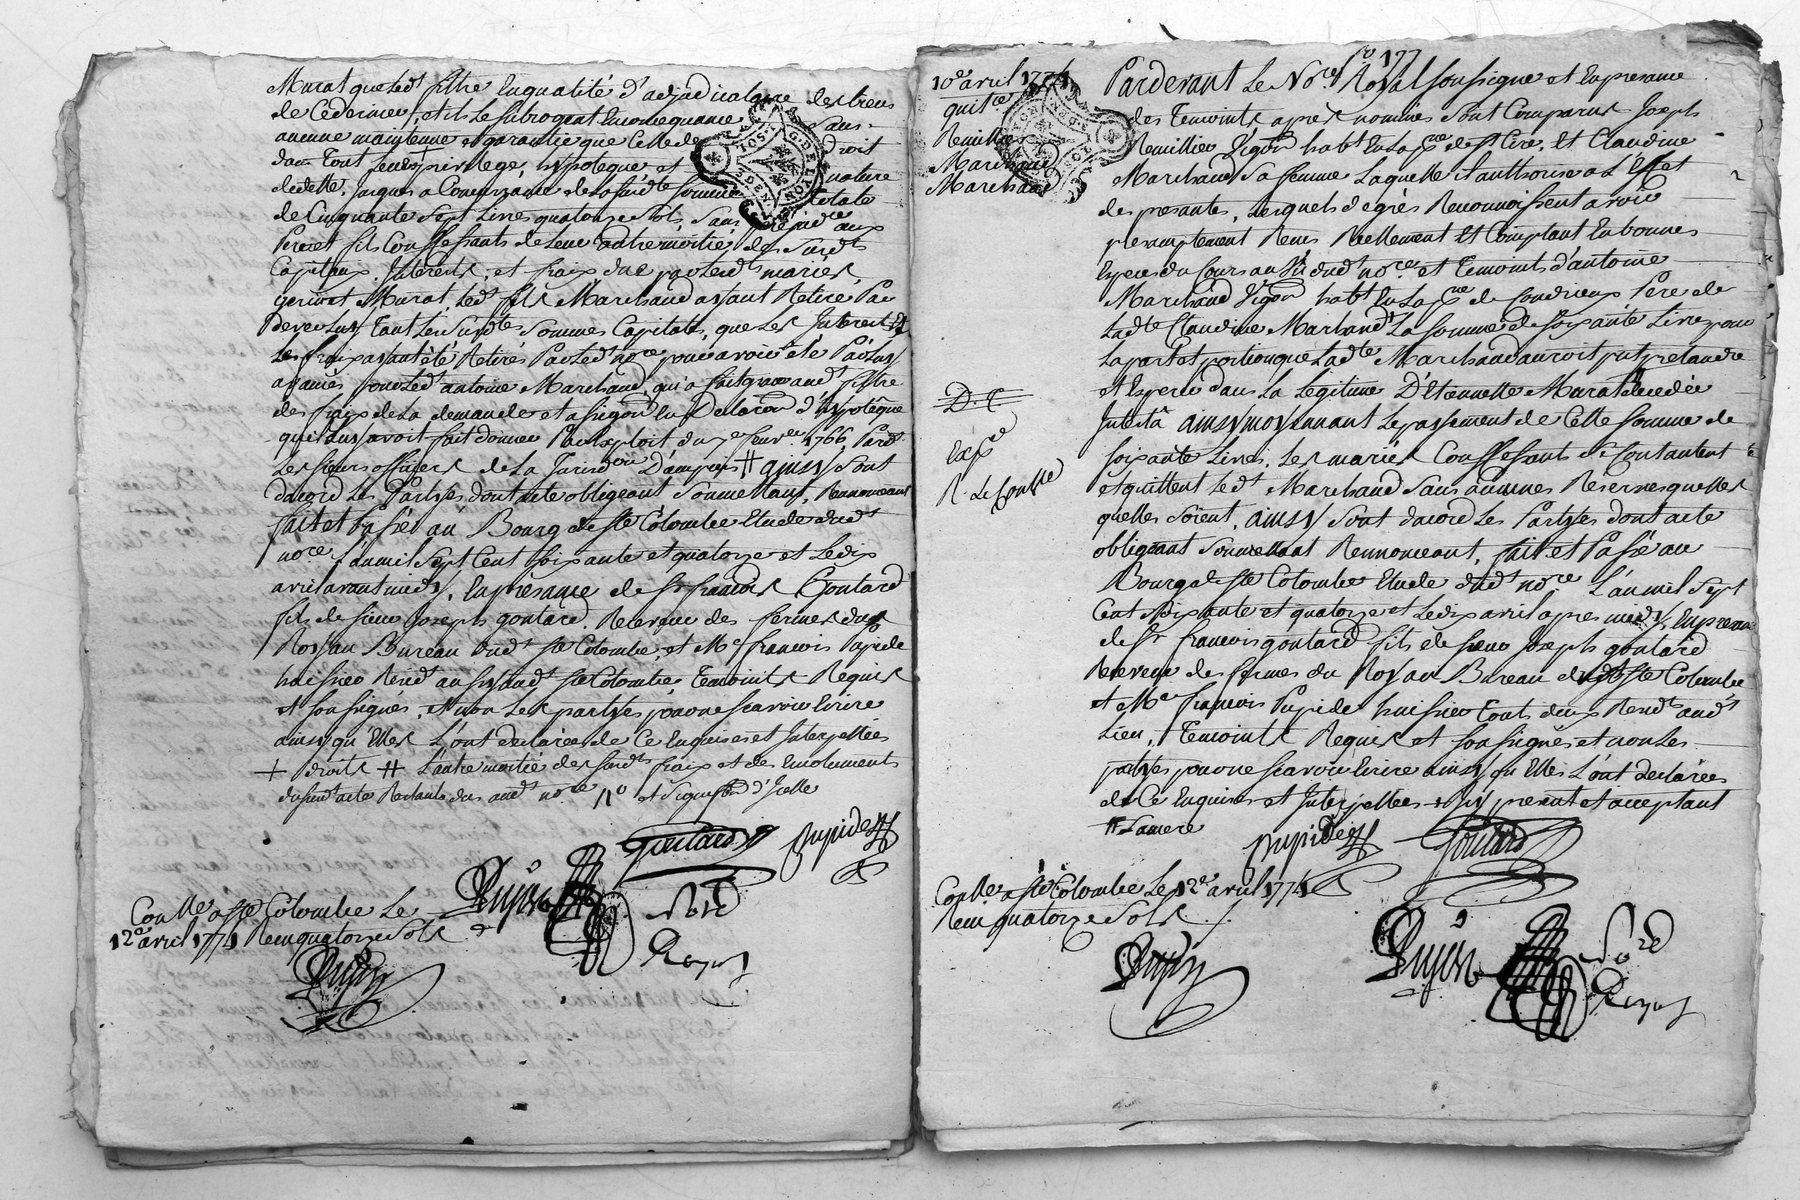 Murat que led.t filtre En qualité d'adjudicataire des biens
de Ced.t dimer, et ils le subrogent En come quance sans
aucune maintenue et garantie que Celle de droit
dans Tout leurs privilege, hypoteque et nature
de dette, Jusques a Concurrance de la susd.te somme totale
de Cinquante Sept Livres quatorze sols, sans préjud.ce aux
Pere et fils Confessants de leur autre moitié des susd.ts
Capitaux, Interets, et fraix dus par lesd.ts mariés
et Murat, led.t fils Marchand ayant Retiré Par
devers Luy Tant les susd.tes sommes Capitales, que les Interets et
les fraix ayant été Retirés Par led.t no.re pour avoir été Par Luy
avancés pour led.t antoine Marchand, qui a fait grace aud.t filtre
des fraix de la demande et assig.on En Declara.on d'hypotéque
qu'il Luy avoit fait donner Par Exploit du 7e fevr.er 1766 Pard.t
Les sieurs officiers de la Jurisd.on D'ampuis # ainsy sont
dacord les Partyes dont acte obligeant soumettant, Rennonceant
fait et Passé au Bourg de ste Colombe Etude dud.t
no.re L'an mil sept Cent soixante et quatorze et le dix
avril avant midy, En présance de sr françois Goutard
fils de sieur Joseph goutard, Receveur des fermes du
Roy au Bureau dud.t ste Colombe, et Me françois Pupide
huissier Resid.t au susd.t ste Colombe, Temoints Requis
et soussignés, et non les partyes pour ne scavoir Ecrire
ainsy qu'Elles L'ont declarées de Ce Enquises et Interpellées
+ droits # L'autre moitié des susd.ts fraix et des Emoluments
du susd.t acte Restants dus aud.t no.re et
Goutard Pupide
Dujast
No.re
Royal
Con.lle a ste Colombe Le
12e avril 1774 Reçu quatorze sols
Dujast
10e avril 1774
quit.ce
Remillier
Marchand
Marchand
D. C
Exp.ée
177
Pardevant Le No.re Royal soussigné et En presance
des Temoints apres nommés sont Comparus Joseph
Remillier Vigon hab.t En la p.sse de st Cire, Et Claudine
Marchand sa femme Laquelle Il authorise a L'Effet
des presantes, Lesquels de grés Reconnoissent avoir
presamptement Reçus Reellement Et Comptant En bonnes
Especes du Cours au vü dud.t no.re et Temoints d'antoine
Marchand Vigon hab.t En La p.sse de Condrieux Pere de
Lad.te Claudine Marchand La somme de soixante Livres pour
La part et portion que Lad.te Marchand auroit put pretandre
et Esperer dans La Legitime D'Etiennette Murat decedée
ainsy moyennant Le payement de Cette somme de
soixante Livres, Les mariés Confessants se Contantent
et quittent led.t Marchand Sans aucunes Reserves quelles
quelles soient, ainsy sont dacord les Partyes dont acte
obligeant soumettant Rennonceant, fait et Passé au
Bourg de ste Colombe Etude dud.t no.re L'an mil sept
Cent soixante et quatorze et le dix avril apres midy, En presance
de sr françois goutard fils de sieur Joseph goutard
Receveur des fermes du Roy au Bureau dud.t ste Colombe
et Me françois Pupide huissier touts deux Resid.ts aud.t
Lieu, Temoints Requis et soussignés et non les
partyes pour ne scavoir Ecrire ainsy qu'Elles L'ont declarées
de Ce Enquises et Interpellées + Icy present et acceptant
# sa mere
Pupide Goutard
Con.lle a ste Colombe Le 12e avril 1774
Reçu quatorze Sols
Dujast
Dujast
No.re
Royal